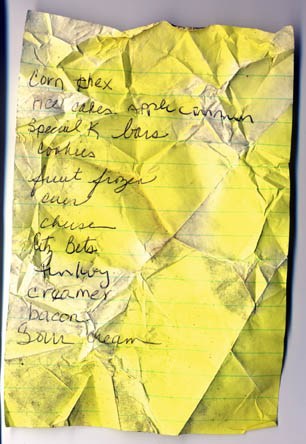 Corn chex
rice cakes apple cinnamon
Special K bars
Cookies
fruit frozen
cheese
creamer
bacon
Sour cream